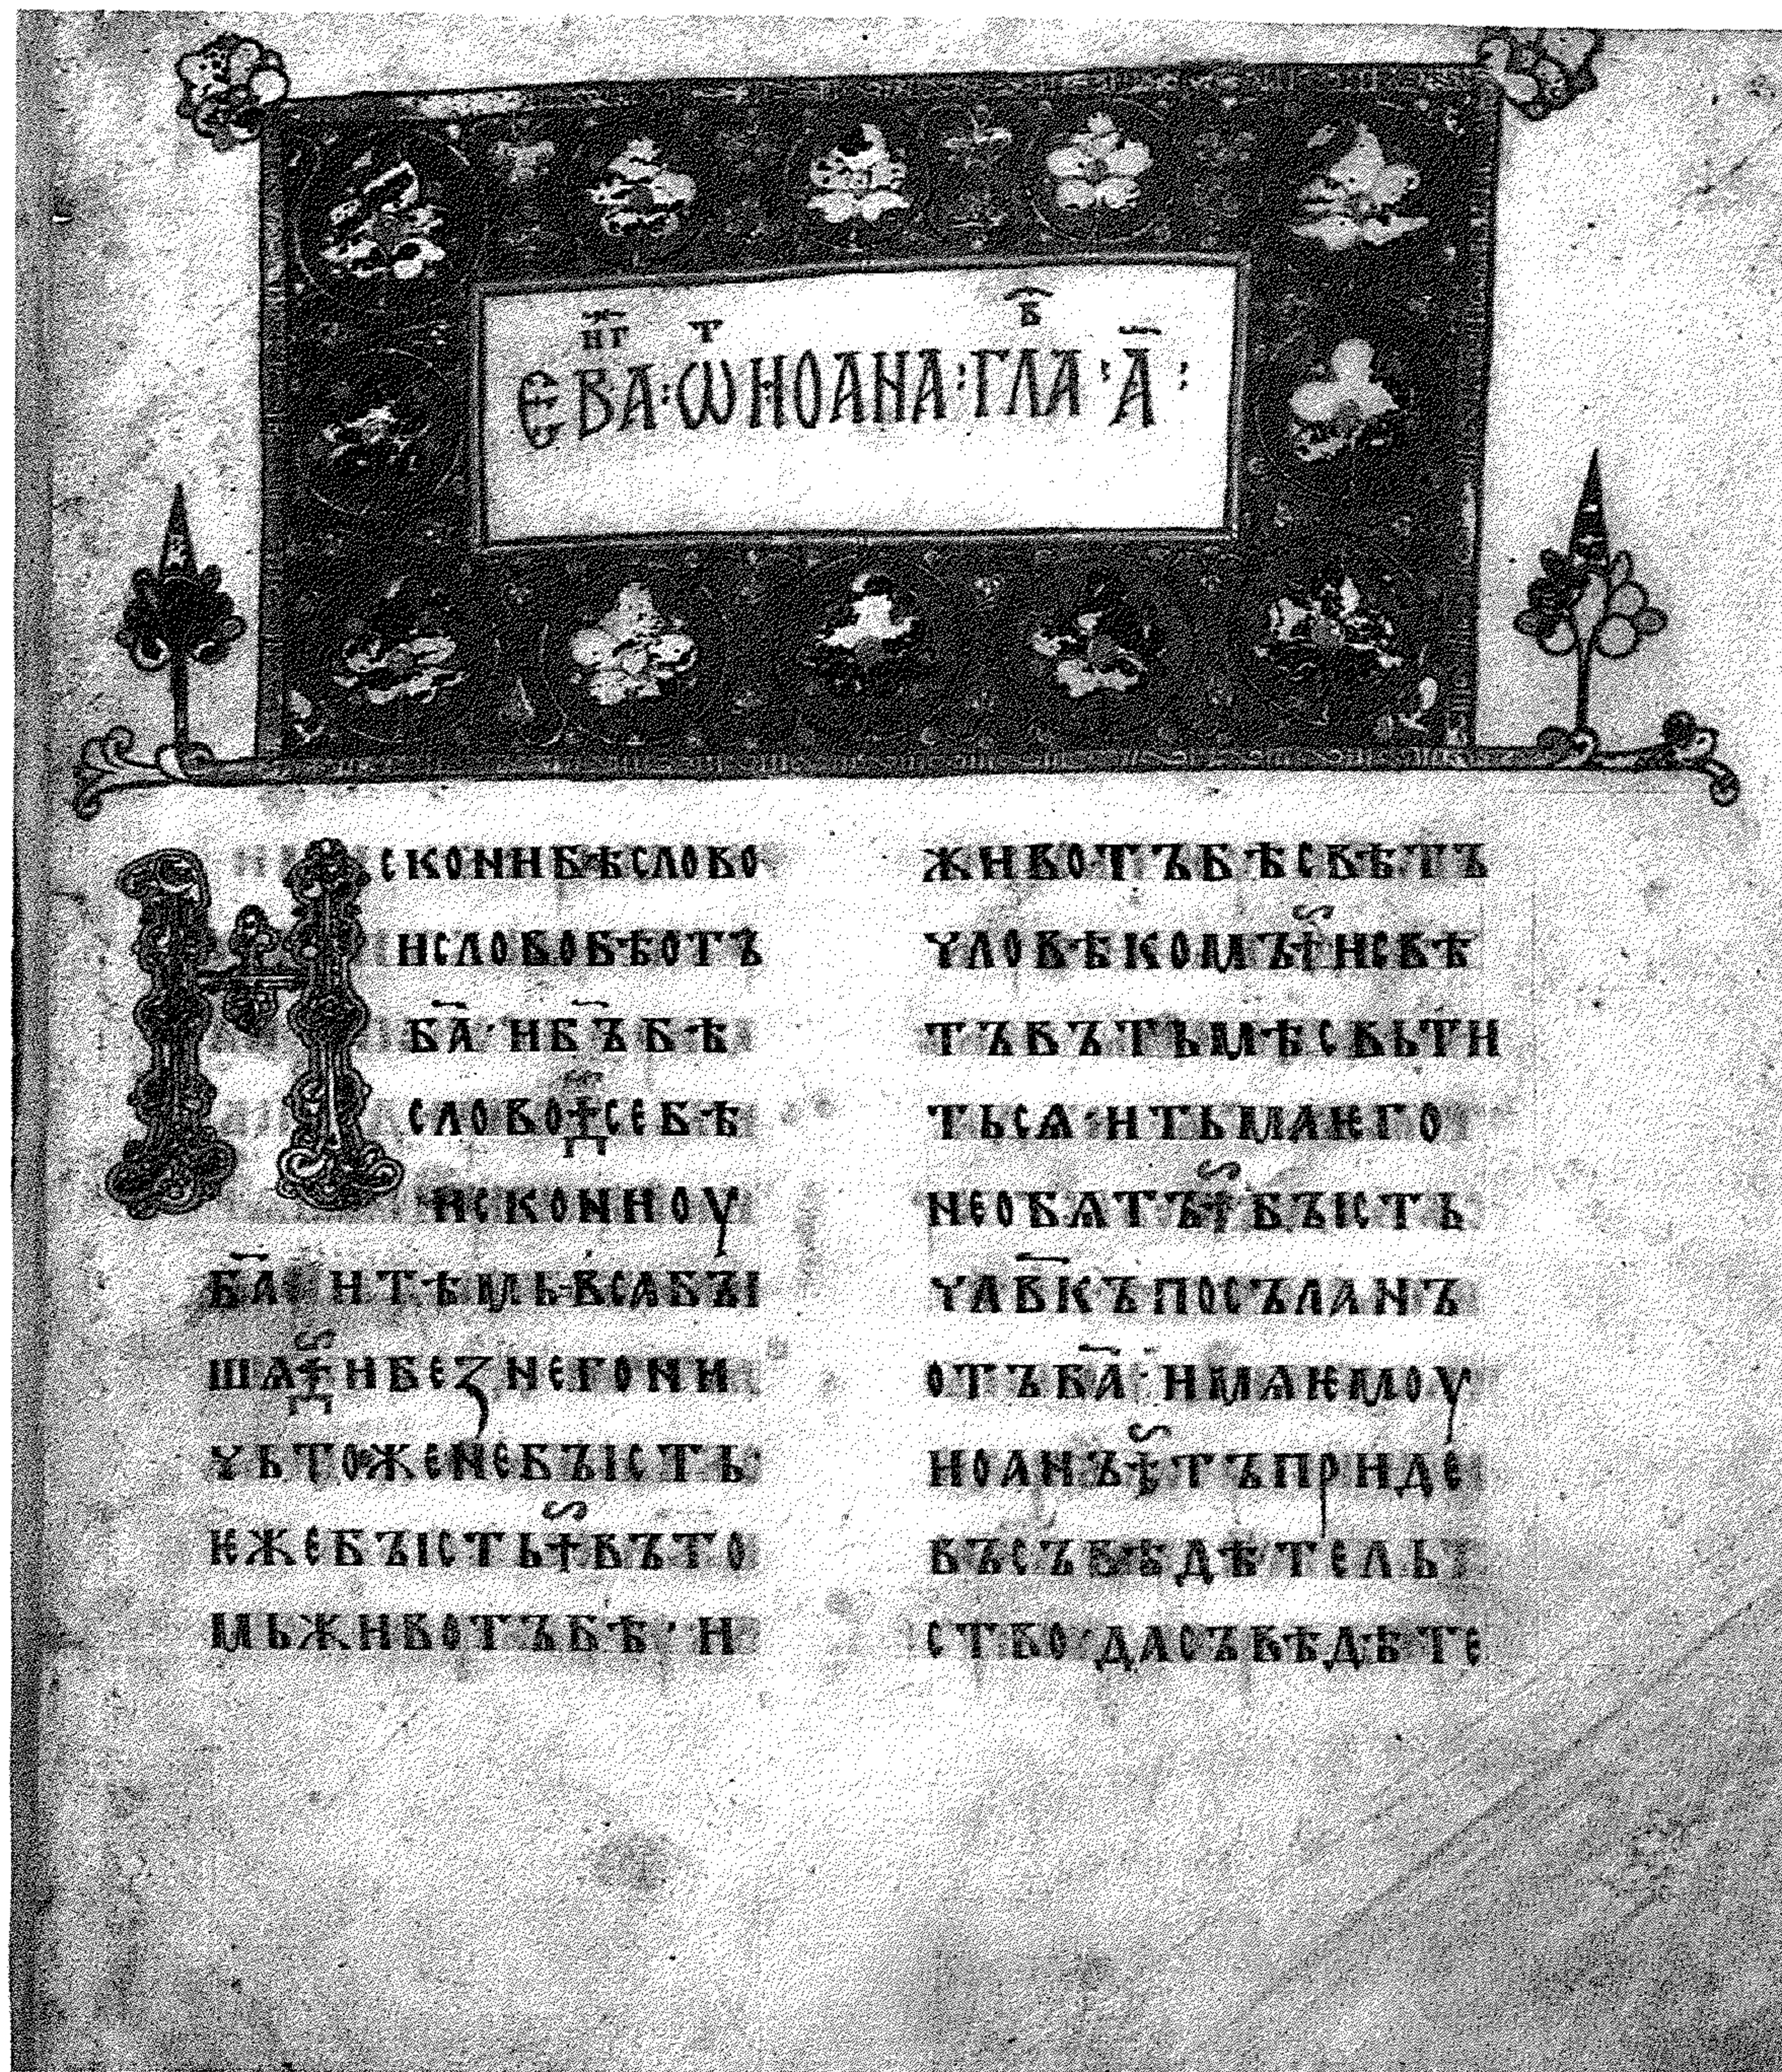 ЕВА҃НГ ѿ ИОАНА : ГЛ҃АВ · А҃ :
ИСКОНИБѢСЛОВО
ИСЛОВОБѢОТЪ
Б҃А · ИБ҃ЪБѢ
СЛОВО ⁘ СЕБѢ
ИСКОНИОУ
Б҃А · ИТѢМЬВСѦБЪІ
ШѦ ⁘ ИБЕꙀНЕГОНИ
ЧЬТОЖЕНЕБЪІСТЬ ·
ѤЖЕБЪІСТЬ ⁘ ВЪТО
МЬЖИВОТЪБѢ · И
ЖИВОТЪБѢСВѢТЪ
ЧЛОВѢКОМЪ ⁘ ИСВѢ
ТЪВЪТЬМѢСВЬТИ
ТЬСѦ · ИТЬМАѤГО
НЕОБѦТЪ ⁘ БЪІСТЬ
ЧЛ҃ВКЪПОСЪЛАНЪ
ОТЪБ҃А · ИМѦѤМОУ
ИОАНЪ ⁘ ТЪПРИДЕ
ВЪСЪВѢДѢТЕЛЬ
СТВО · ДАСЪВѢДѢТЕ